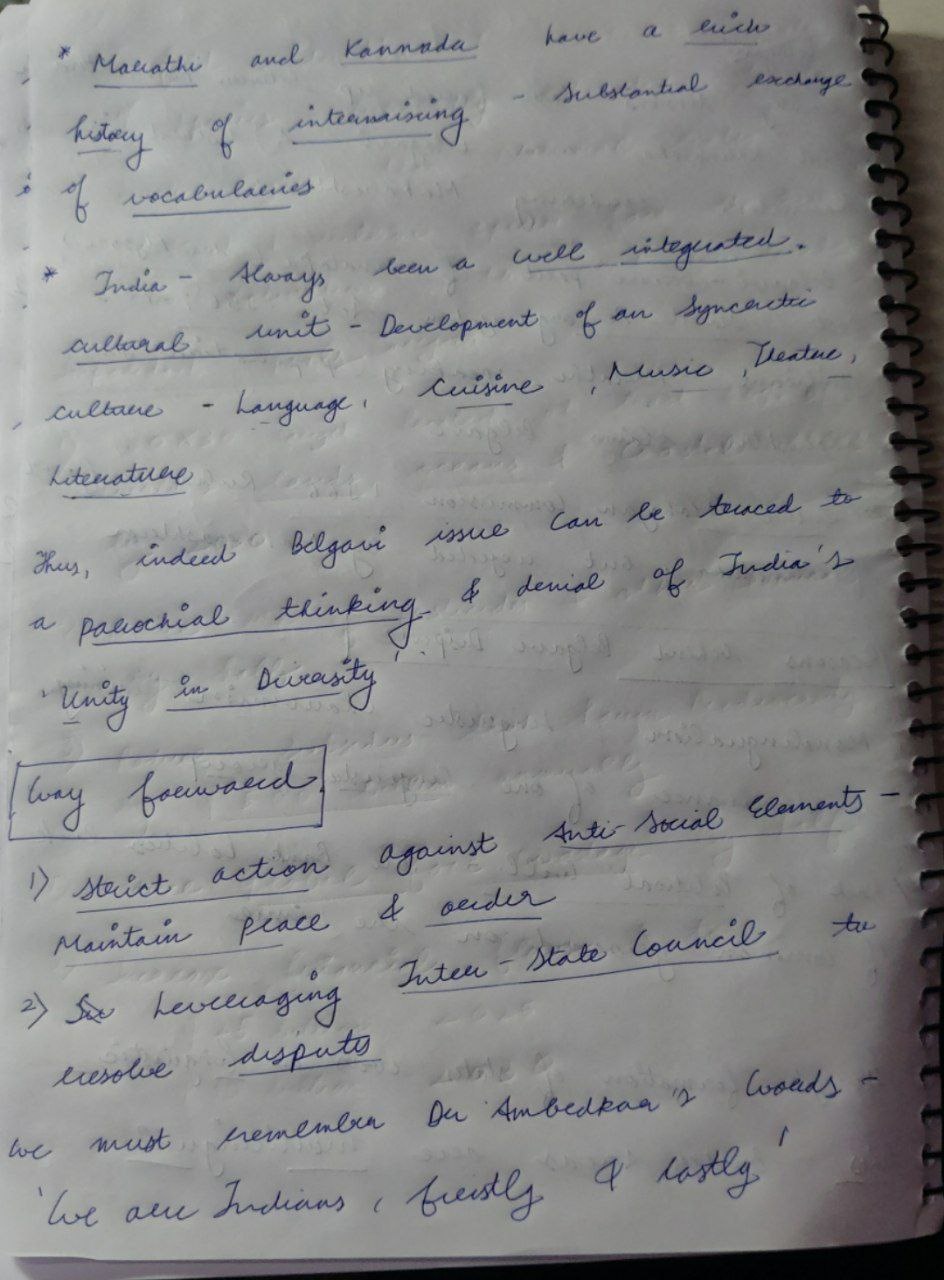 * Marathi and Kannada have a rich
history of intermixing - substantial exchange
of vocabularies
* India - Always been a well integrated.
cultural unit - Development of an syncretic
culture - Language, Cuisine, Music, Theatre,
Literature
Thus, indeed Belgavi issue can be traced to
a parochial thinking & denial of India's
'Unity in Diversity'
Way forward
1) Strict action against Anti-Social Elements -
Maintain peace & order
2) Leveraging Inter-State Council to
resolve disputes
We must remember Dr Ambedkar's words -
'We are Indians, firstly & lastly'